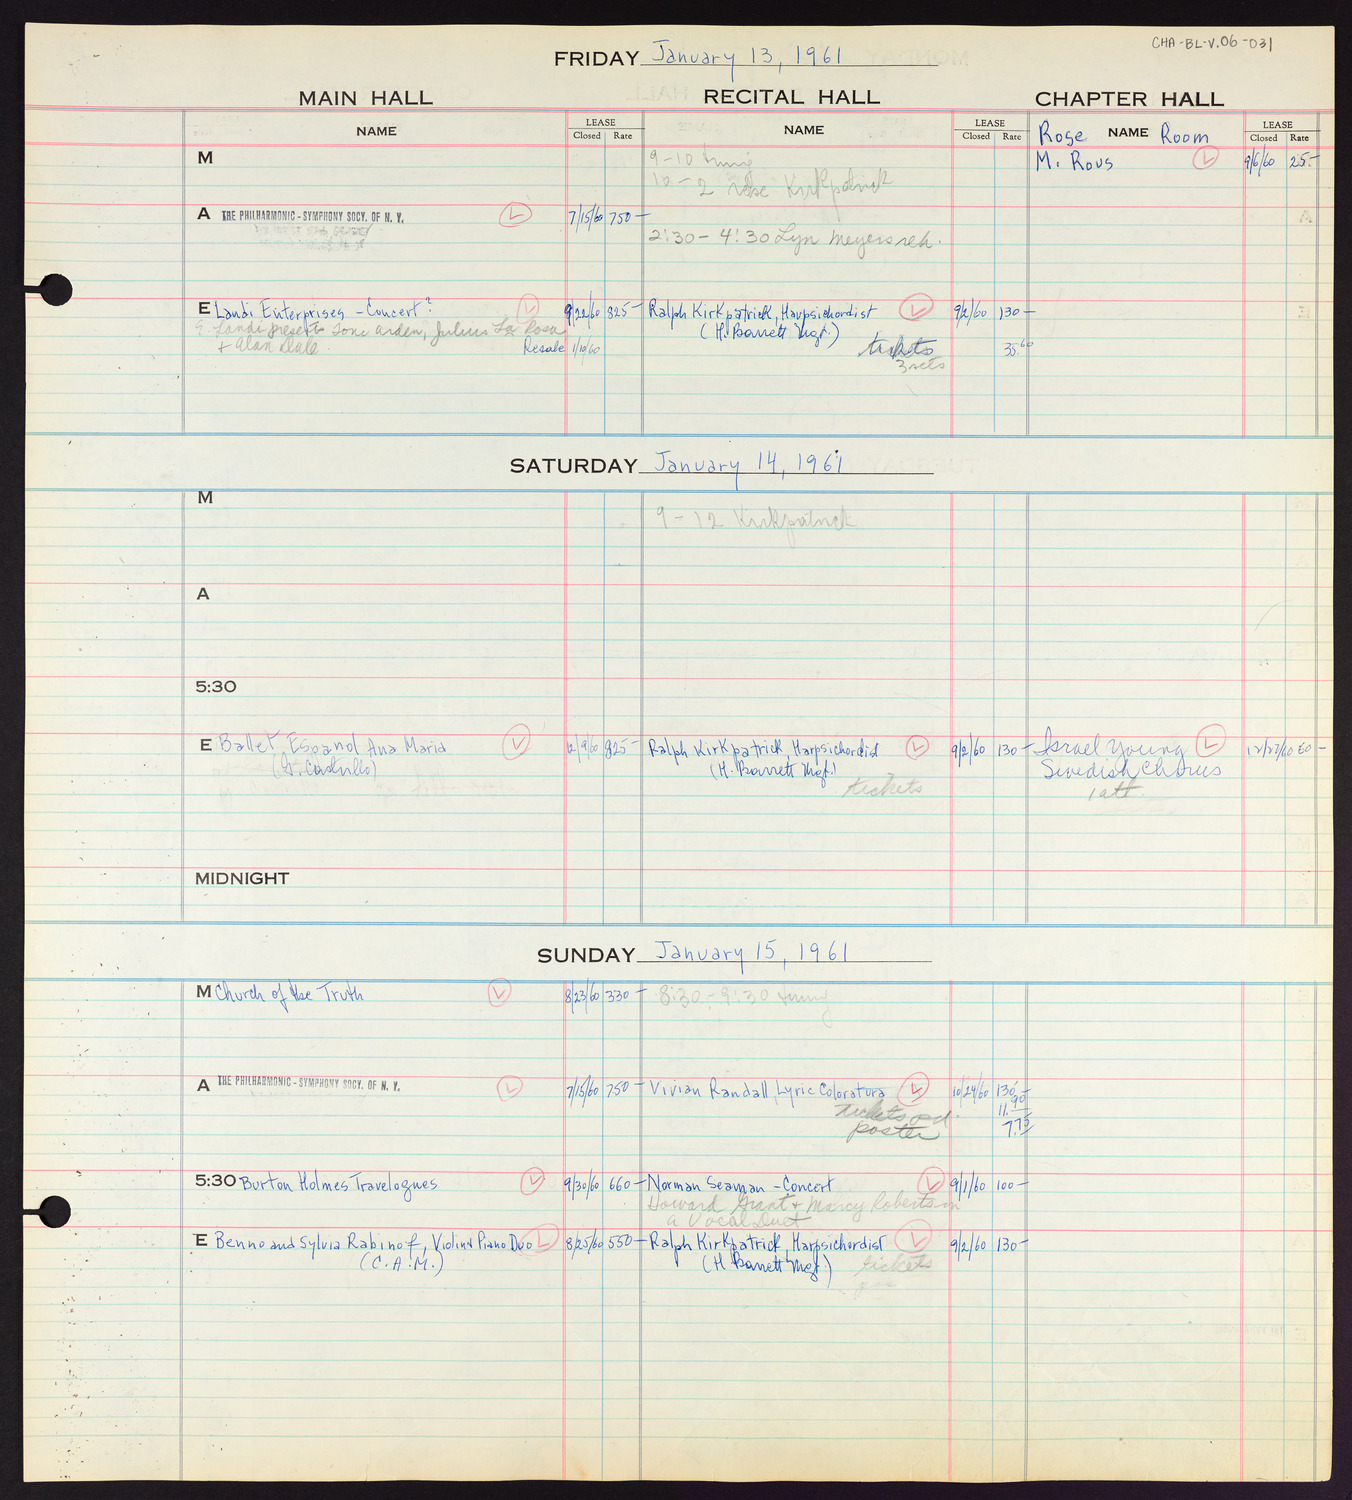 CHA-BL-V.06-031
FRIDAY January 13, 1961
MAIN HALL RECITAL HALL CHAPTER HALL
NAME LEASE Closed Rate NAME LEASE Closed Rate Rose NAME Room LEASE Closed Rate
M 9-10 tuning M. Rous 9/6/60 25.-
10-2 rehse Kirkpatrick
A THE PHILHARMONIC-SYMPHONY SOCY. OF N. Y. 7/15/60 750-
2:30-4:30 Lyn Meyers reh.
E Landi Enterprises - Concert? 9/22/60 825- Ralph Kirkpatrick, Harpsichordist 9/2/60 130-
E. Landi presents Toni Arden, Julius La Rosa (H. Barrett Mgt.)
+ Alan Dale. Resale 1/10/60 tickets 35.60
3 sets
SATURDAY January 14, 1961
M
9-12 Kirkpatrick
A
5:30
E Ballet Espanol Ana Maria 12/9/60 825- Ralph Kirkpatrick, Harpsichordist 9/2/60 130- Israel Young 12/27/60 60-
(G. Castrillo) (H. Barrett Mgt.) Swedish Chorus
tickets 1 att.
MIDNIGHT
SUNDAY January 15, 1961
M Church of the Truth 8/23/60 330- 8:30-9:30 tuning
A THE PHILHARMONIC-SYMPHONY SOCY. OF N. Y. 7/15/60 750- Vivian Randall, Lyric Coloratura 10/24/60 130-
tickets pd. 11.90
poster 7.75
5:30 Burton Holmes Travelogues 9/30/60 660- Norman Seaman - Concert 9/1/60 100-
Howard Grant + Marcy Roberts in
a Vocal Duet
E Benno and Sylvia Rabinof, Violin & Piano Duo 8/25/60 550- Ralph Kirkpatrick, Harpsichordist 9/2/60 130-
(C.A.M.) (H Barrett Mgt.) tickets